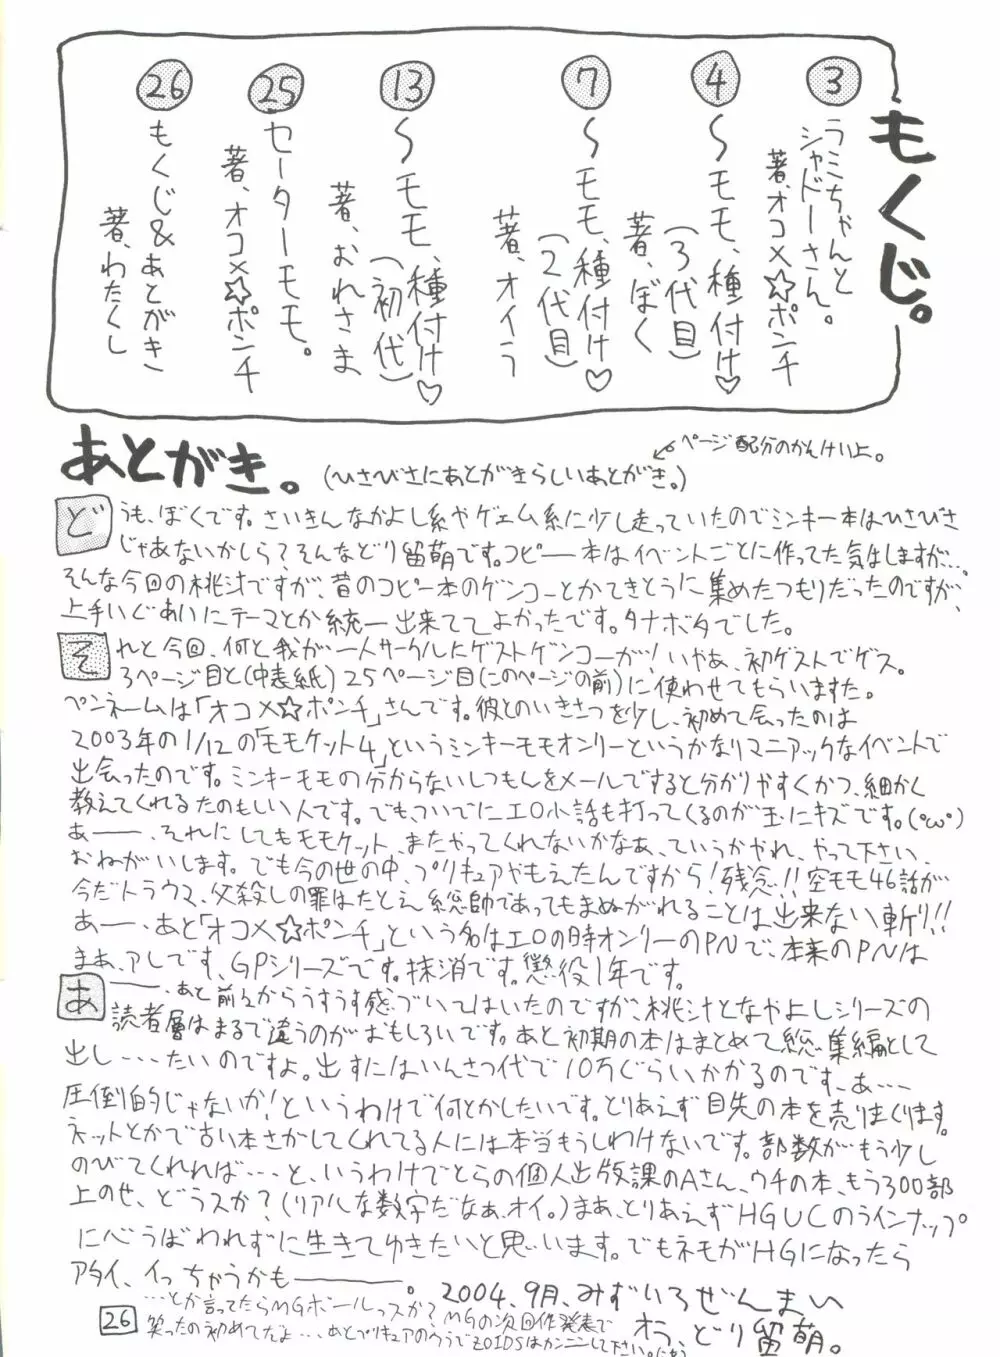 もくじ。
3
ラミちゃんと
シャドーさん。
著、オコメ☆ポンチ
4
〜モモ、種付け♡
(3代目)
著、ぼく
7
〜モモ、種付け♡
(2代目)
著、オイラ
13
〜モモ、種付け♡
(初代)
著、おれさま
25
セーターモモ。
著、オコメ☆ポンチ
26
もくじ&あとがき
著、わたくし
あとがき。
(ひさびさにあとがきらしいあとがき。)
ページ配分のかんけい上。
どうも、ぼくです。さいきんなかよし系やゲェム系に少し走っていたのでミンキー本はひさびさ
じゃあないかしら?そんなどり留萌です。コピー本はイベントごとに作ってた気はしますが…。
そんな今回の桃汁ですが、昔のコピー本のゲンコーとかてきとうに集めたつもりだったのですが、
上手いぐあいにテーマとか統一出来ててよかったです。タナボタでした。
それと今回、何と我が一人サークルにゲストゲンコーが!いやあ、初ゲストでゲス。
3ページ目と(中表紙)25ページ目(このページの前)に使わせてもらいました。
ペンネームは「オコメ☆ポンチ」さんです。彼とのいきさつを少し、初めて会ったのは
2003年の1/12の「モモケット4」というミンキーモモオンリーというかなりマニアックなイベントで
出会ったのです。ミンキーモモの分からないしつもんをメールですると分かりやすくかつ、細かく
教えてくれるたのもしい人です。でも、ついでにエロ小話も打ってくるのが玉にキズです。(°ω°)
あー、それにしてもモモケット、またやってくれないかなあ、ていうかやれ、やって下さい、
おねがいします。でも今の世の中、プリキュアやもえたんですから!残念!!空モモ46話が
今だトラウマ、父殺しの罪はたとえ総帥であってもまぬがれることは出来ない斬り!!
あー、あと「オコメ☆ポンチ」という名はエロの時オンリーのPNで、本来のPNは
まあ、アレです、GPシリーズです。抹消です。懲役1年です。
あー、あと前々からうすうす感づいてはいたのですが、桃汁となやよしシリーズの
読者層はまるで違うのがおもしろいです。あと初期の本はまとめて総集編として
出し…たいのですよ。出すにはいんさつ代で10万ぐらいかかるのです、あ…
圧倒的じゃないか!というわけで何とかしたいです。とりあえず目先の本を売りまくります。
ネットとかで古い本さがしてくれてる人には本当もうしわけないです。部数がもう少し
のびてくれれば…と、いうわけでとらの個人出版課のAさん、ウチの本、もう300部
上のせ、どうスか?(リアルな数字だなぁ、オイ。)まあ、とりあえずHGUCのラインナップ
に心うばわれずに生きてゆきたいと思います。でもネモがHGになったら
アタイ、イっちゃうかもー。
2004、9月、みずいろぜんまい
オラ、どり留萌。
…とか言ってたらMGボールっスか?MGの次回作発表で
笑ったの初めてだよ…あとプリキュアのウラでZOIDSはカンニンして下さい。
26